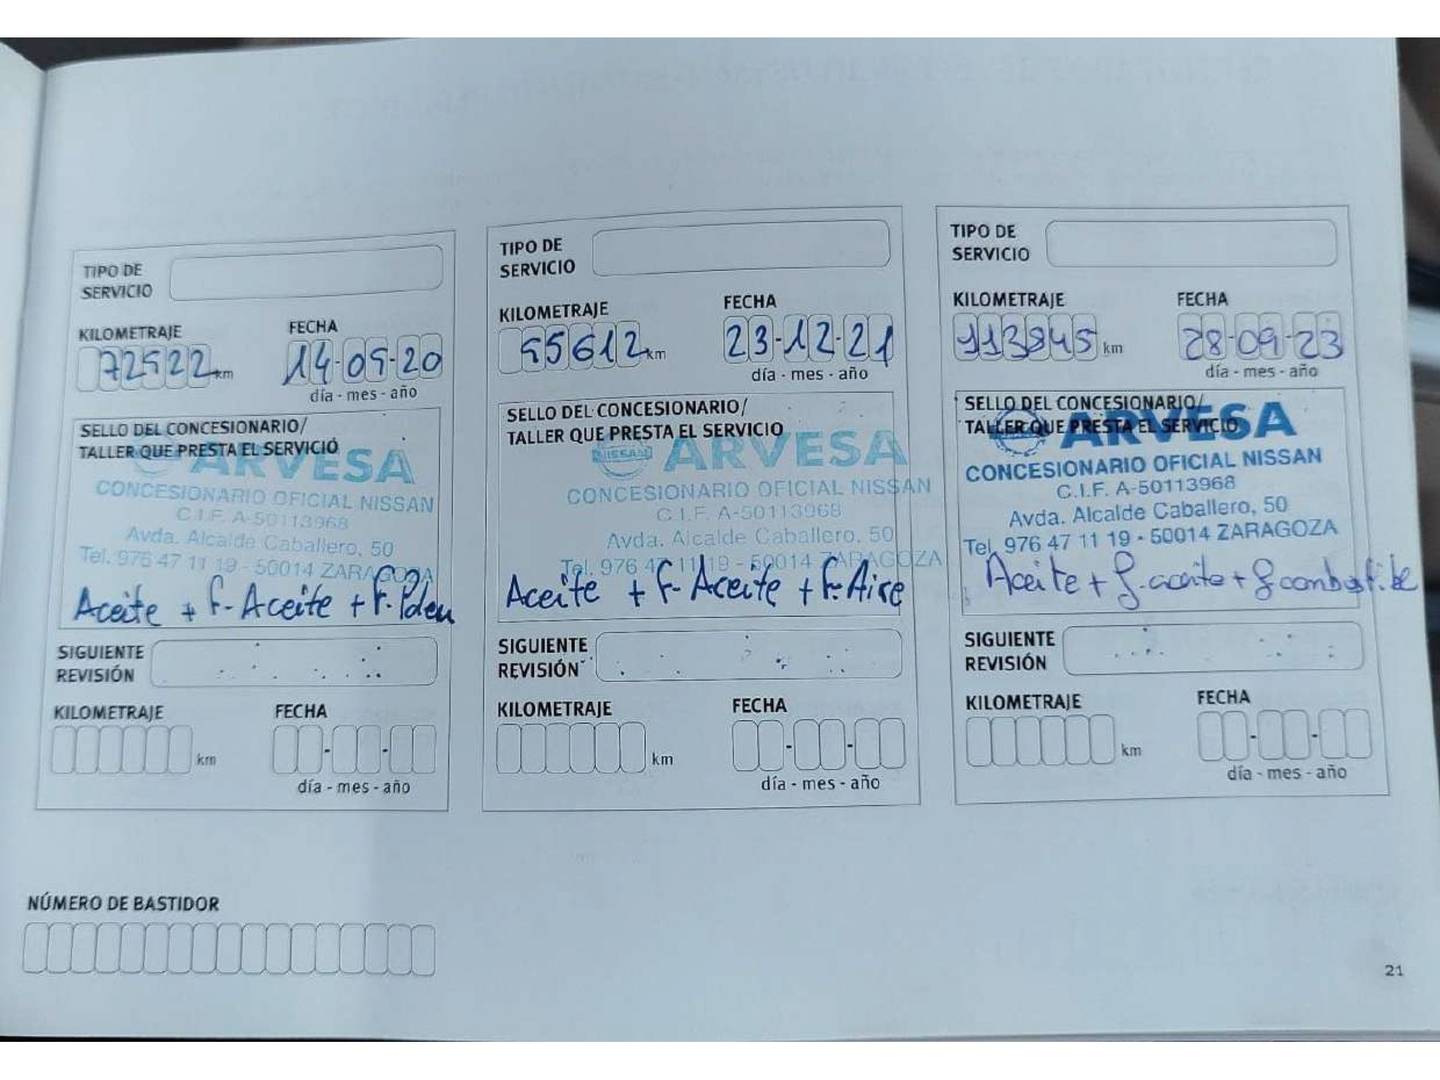 TIPO DE
SERVICIO
KILOMETRAJE
FECHA
72522 km
14-09-20
día - mes - año
SELLO DEL CONCESIONARIO/
TALLER QUE PRESTA EL SERVICIO
ARVESA
CONCESIONARIO OFICIAL NISSAN
C.I.F. A-50113968
Avda. Alcalde Caballero, 50
Tel. 976 47 11 19 - 50014 ZARAGOZA
Aceite + F- Aceite + F. Polen
SIGUIENTE
REVISIÓN
KILOMETRAJE
FECHA
km
día - mes - año
TIPO DE
SERVICIO
KILOMETRAJE
FECHA
95612 km
23-12-21
día - mes - año
SELLO DEL CONCESIONARIO/
TALLER QUE PRESTA EL SERVICIO
NISSAN ARVESA
CONCESIONARIO OFICIAL NISSAN
C.I.F. A-50113968
Avda. Alcalde Caballero, 50
Tel. 976 47 11 19 - 50014 ZARAGOZA
Aceite + F- Aceite + F. Aire
SIGUIENTE
REVISIÓN
KILOMETRAJE
FECHA
km
día - mes - año
TIPO DE
SERVICIO
KILOMETRAJE
FECHA
113845 km
28-09-23
día - mes - año
SELLO DEL CONCESIONARIO/
TALLER QUE PRESTA EL SERVICIO
ARVESA
CONCESIONARIO OFICIAL NISSAN
C.I.F. A-50113968
Avda. Alcalde Caballero, 50
Tel. 976 47 11 19 - 50014 ZARAGOZA
Aceite + f. aceite + f combustible
SIGUIENTE
REVISIÓN
KILOMETRAJE
FECHA
km
día - mes - año
NÚMERO DE BASTIDOR
21